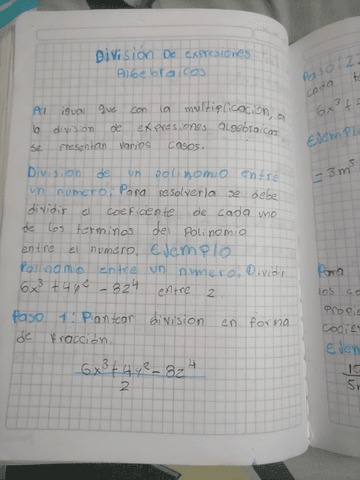 División De expresiones
Algebraicas
Al igual que con la multiplicación, a
la división de expresiones algebraicas
se presentan varios casos.
División de un polinomio entre
un numero. Para resolverla se debe
dividir el coeficiente de cada uno
de los terminos del Polinomio
entre el numero. Ejemplo
Polinomio entre un numero. Dividir
6x³ + 4y² - 8z⁴ entre 2
Paso 1: Plantear división en forma
de fracción.
6x³ + 4y² - 8z⁴
2
Paso: 2
cada
6x³ +
Ejemplo
= 3m³
Para
los
propie
cocie
Ejem